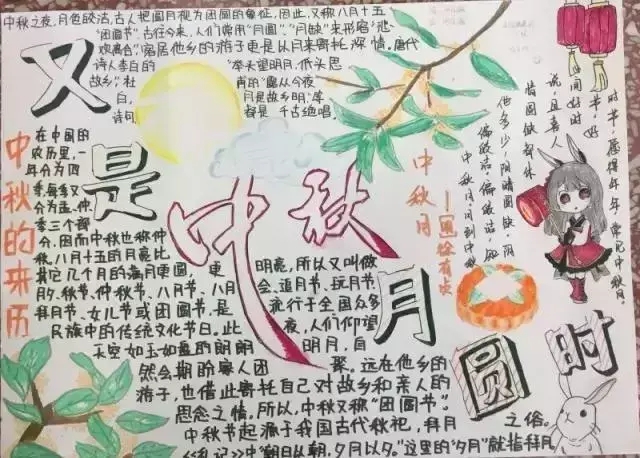 中秋之夜，月色皎洁，古人把圆月视为团圆的象征，因此，又称八月十五
"团圆节"。古往今来，人们常用"月圆"、"月缺"来形容"悲
欢离合"，客居他乡的游子更是以月来寄托深情。唐代
诗人李白的 "举头望明月，低头思
故乡"，杜 甫的"露从今夜
白， 月是故乡明"等
诗句 都是千古绝唱
又是
中秋月
圆时
中秋的来历
在中国的
农历里，一
年分为四
季，每季又
分为孟、仲、
季三个部
分，因而中秋也称仲
秋。八月十五的月亮比
其它几个月的满月更圆， 更 明亮，所以又叫做
月夕、秋节、仲秋节、八月节、八月 会、追月节、玩月节、
拜月节、女儿节或团圆节，是 流行于全国众多
民族中的传统文化节日。此 夜，人们仰望
天空如玉如盘的朗朗 明月，自
然会期盼家人团 聚。远在他乡的
游子，也借此寄托自己对故乡和亲人的
思念之情。所以，中秋又称"团圆节"。
中秋节起源于我国古代秋祀，拜月 之俗。
《礼记》中"朝日以朝，夕月以夕。"这里的"夕月"就指拜月
中秋月
—徐有贞
中秋月。月到中秋
偏皎洁。偏皎洁，知
他多少，阴晴圆缺。阴
晴圆缺都休
说，且喜人
间好时
节。好
时节，愿得年年，常见中秋月。